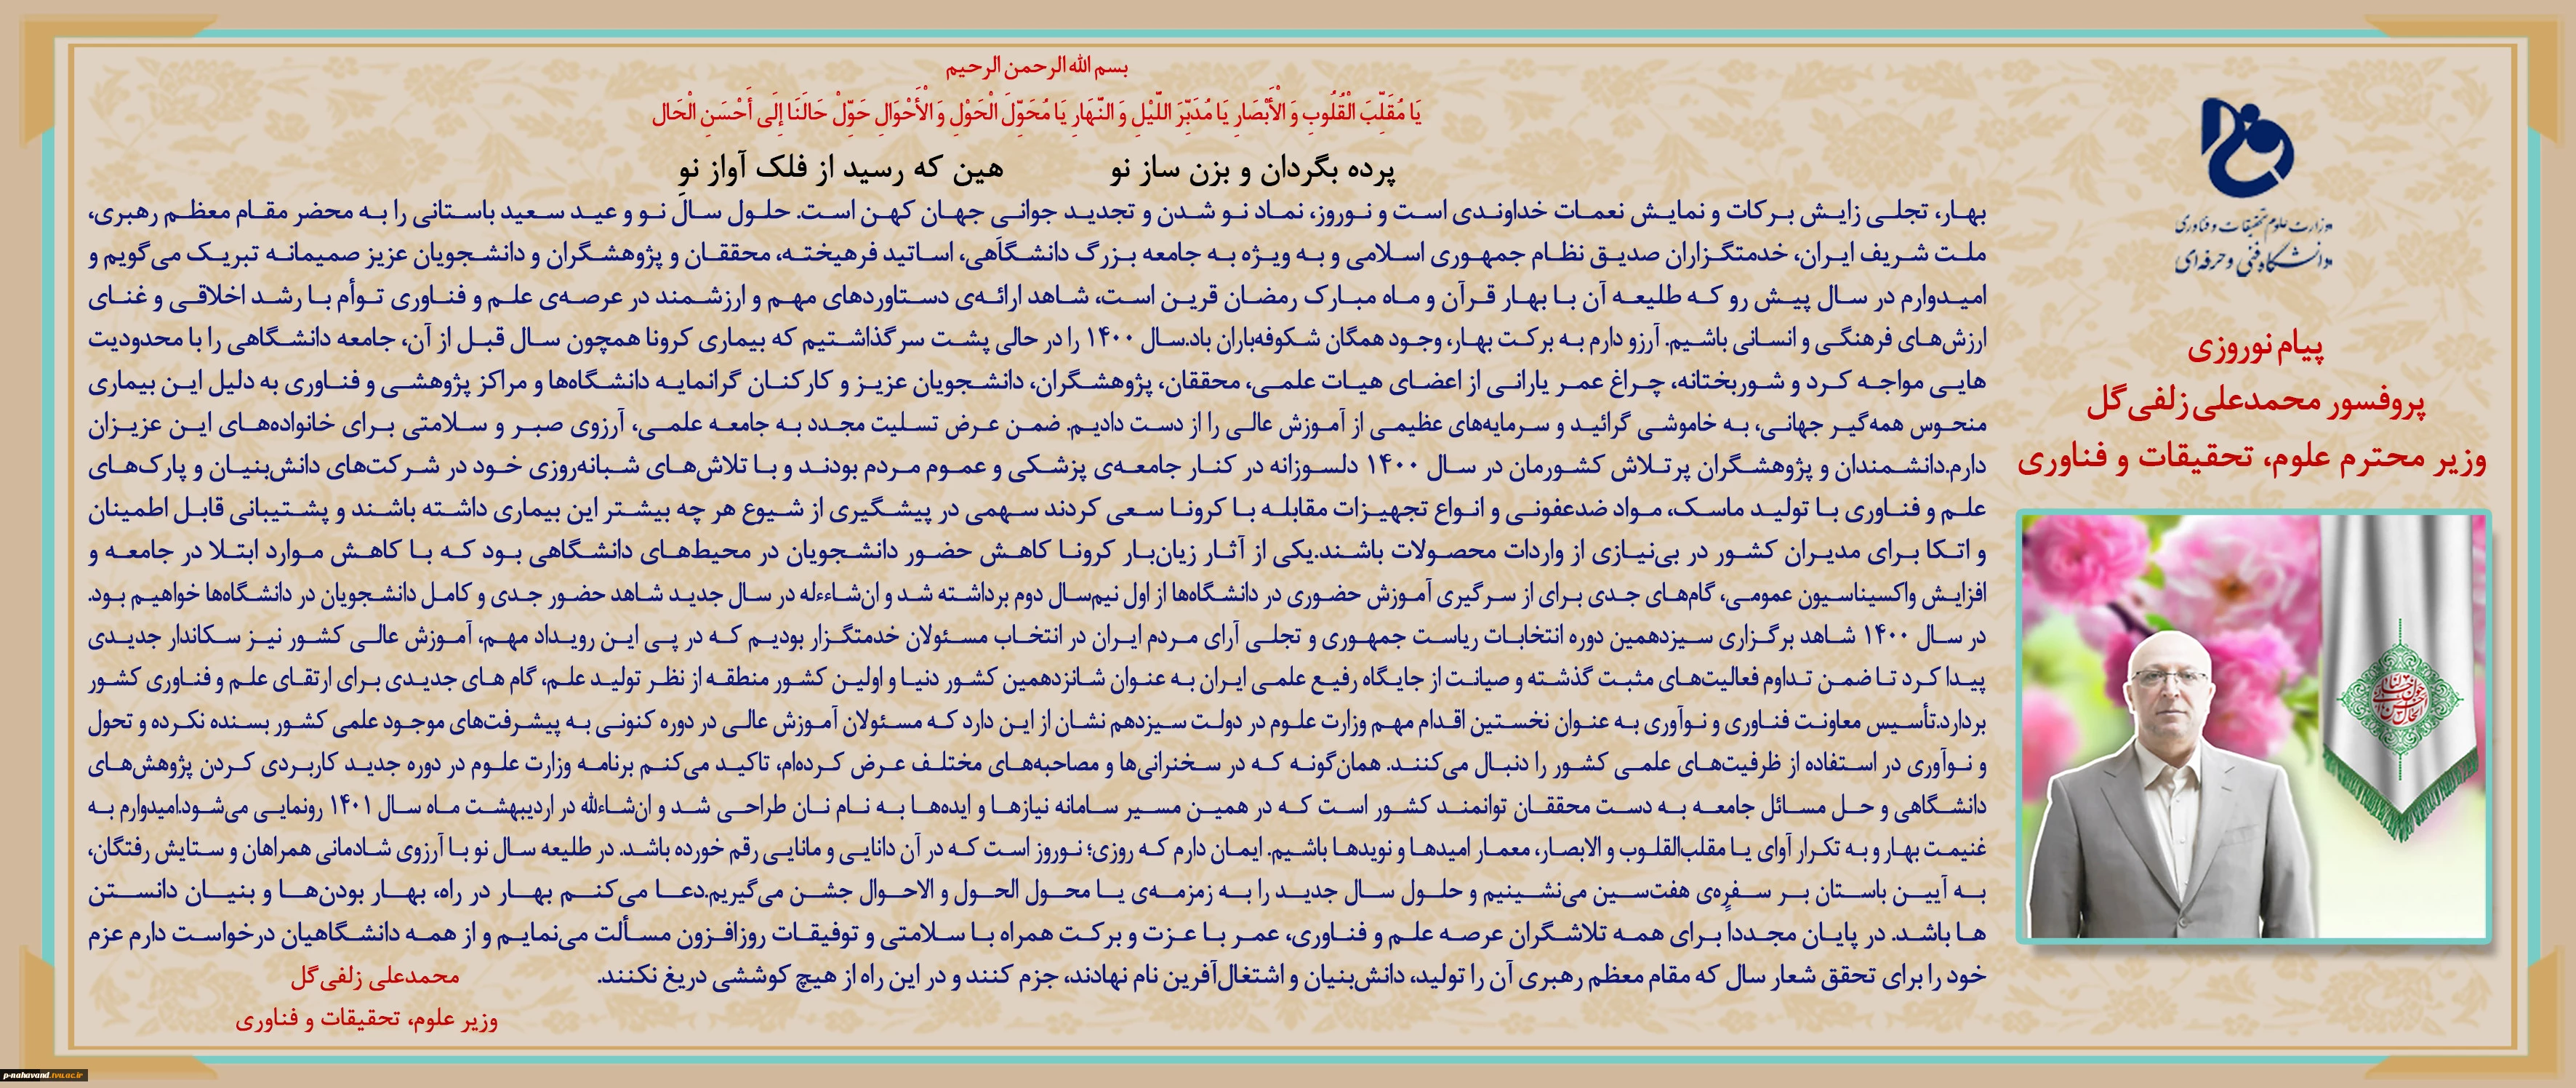 بسم الله الرحمن الرحیم
یَا مُقَلِّبَ الْقُلُوبِ وَ الْأَبْصَارِ یَا مُدَبِّرَ اللَّیْلِ وَ النَّهَارِ یَا مُحَوِّلَ الْحَوْلِ وَ الْأَحْوَالِ حَوِّلْ حَالَنَا إِلَی أَحْسَنِ الْحَال
پرده بگردان و بزن ساز نو هین که رسید از فلک آواز نو
بهار، تجلی زایش برکات و نمایش نعمات خداوندی است و نوروز، نماد نو شدن و تجدید جوانی جهان کهن است. حلول سال نو و عید سعید باستانی را به محضر مقام معظم رهبری،
ملت شریف ایران، خدمتگزاران صدیق نظام جمهوری اسلامی و به ویژه به جامعه بزرگ دانشگاهی، اساتید فرهیخته، محققان و پژوهشگران و دانشجویان عزیز صمیمانه تبریک می‌گویم و
امیدوارم در سال پیش رو که طلیعه آن با بهار قرآن و ماه مبارک رمضان قرین است، شاهد ارائه‌ی دستاوردهای مهم و ارزشمند در عرصه‌ی علم و فناوری توأم با رشد اخلاقی و غنای
ارزش‌های فرهنگی و انسانی باشیم. آرزو دارم به برکت بهار، وجود همگان شکوفه‌باران باد.سال ۱۴۰۰ را در حالی پشت سر گذاشتیم که بیماری کرونا همچون سال قبل از آن، جامعه دانشگاهی را با محدودیت
هایی مواجه کرد و شوربختانه، چراغ عمر یارانی از اعضای هیات علمی، محققان، پژوهشگران، دانشجویان عزیز و کارکنان گرانمایه دانشگاه‌ها و مراکز پژوهشی و فناوری به دلیل این بیماری
منحوس همه‌گیر جهانی، به خاموشی گرائید و سرمایه‌های عظیمی از آموزش عالی را از دست دادیم. ضمن عرض تسلیت مجدد به جامعه علمی، آرزوی صبر و سلامتی برای خانواده‌های این عزیزان
دارم.دانشمندان و پژوهشگران پرتلاش کشورمان در سال ۱۴۰۰ دلسوزانه در کنار جامعه‌ی پزشکی و عموم مردم بودند و با تلاش‌های شبانه‌روزی خود در شرکت‌های دانش‌بنیان و پارک‌های
علم و فناوری با تولید ماسک، مواد ضدعفونی و انواع تجهیزات مقابله با کرونا سعی کردند سهمی در پیشگیری از شیوع هر چه بیشتر این بیماری داشته باشند و پشتیبانی قابل اطمینان
و اتکا برای مدیران کشور در بی‌نیازی از واردات محصولات باشند.یکی از آثار زیان‌بار کرونا کاهش حضور دانشجویان در محیط‌های دانشگاهی بود که با کاهش موارد ابتلا در جامعه و
افزایش واکسیناسیون عمومی، گام‌های جدی برای از سرگیری آموزش حضوری در دانشگاه‌ها از اول نیم‌سال دوم برداشته شد و ان‌شاءءله در سال جدید شاهد حضور جدی و کامل دانشجویان در دانشگاه‌ها خواهیم بود.
در سال ۱۴۰۰ شاهد برگزاری سیزدهمین دوره انتخابات ریاست جمهوری و تجلی آرای مردم ایران در انتخاب مسئولان خدمتگزار بودیم که در پی این رویداد مهم، آموزش عالی کشور نیز سکاندار جدیدی
پیدا کرد تا ضمن تداوم فعالیت‌های مثبت گذشته و صیانت از جایگاه رفیع علمی ایران به عنوان شانزدهمین کشور دنیا و اولین کشور منطقه از نظر تولید علم، گام های جدیدی برای ارتقای علم و فناوری کشور
بردارد.تأسیس معاونت فناوری و نوآوری به عنوان نخستین اقدام مهم وزارت علوم در دولت سیزدهم نشان از این دارد که مسئولان آموزش عالی در دوره کنونی به پیشرفت‌های موجود علمی کشور بسنده نکرده و تحول
و نوآوری در استفاده از ظرفیت‌های علمی کشور را دنبال می‌کنند. همان‌گونه که در سخنرانی‌ها و مصاحبه‌های مختلف عرض کرده‌ام، تاکید می‌کنم برنامه وزارت علوم در دوره جدید کاربردی کردن پژوهش‌های
دانشگاهی و حل مسائل جامعه به دست محققان توانمند کشور است که در همین مسیر سامانه نیازها و ایده‌ها به نام نان طراحی شد و ان‌شاءالله در اردیبهشت ماه سال ۱۴۰۱ رونمایی می‌شود.امیدوارم به
غنیمت بهار و به تکرار آوای یا مقلب‌القلوب و الابصار، معمار امیدها و نویدها باشیم. ایمان دارم که روزی؛ نوروز است که در آن دانایی و مانایی رقم خورده باشد. در طلیعه سال نو با آرزوی شادمانی همراهان و ستایش رفتگان،
به آیین باستان بر سفره‌ی هفت‌سین می‌نشینیم و حلول سال جدید را به زمزمه‌ی یا محول الحول و الاحوال جشن می‌گیریم.دعا می‌کنم بهار در راه، بهار بودن‌ها و بنیان دانستن
ها باشد. در پایان مجدداً برای همه تلاشگران عرصه علم و فناوری، عمر با عزت و برکت همراه با سلامتی و توفیقات روزافزون مسألت می‌نمایم و از همه دانشگاهیان درخواست دارم عزم
خود را برای تحقق شعار سال که مقام معظم رهبری آن را تولید، دانش‌بنیان و اشتغال‌آفرین نام نهادند، جزم کنند و در این راه از هیچ کوششی دریغ نکنند.
محمدعلی زلفی‌گل
وزیر علوم، تحقیقات و فناوری
وزارت علوم تحقیقات و فناوری
دانشگاه فنی و حرفه‌ای
پیام نوروزی
پروفسور محمدعلی زلفی‌گل
وزیر محترم علوم، تحقیقات و فناوری
p-nahavand.tvu.ac.ir